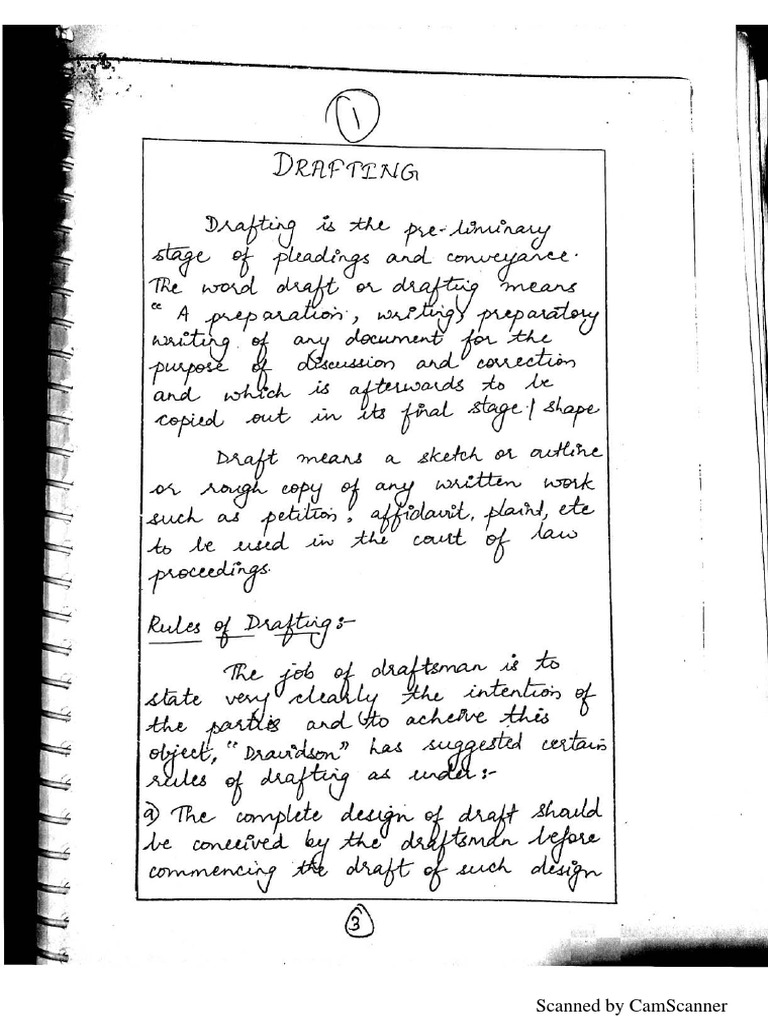 1
DRAFTING
Drafting is the pre-liminary
stage of pleadings and conveyance.
The word draft or drafting means
" A preparation, writing, preparatory
writing of any document for the
purpose of discussion and correction
and which is afterwards to be
copied out in its final stage / shape
Draft means a sketch or outline
or rough copy of any written work
such as petition, affidavit, plaint, etc
to be used in the court of law
proceedings.
Rules of Drafting:-
The job of draftsman is to
state very clearly the intention of
the parties and to acheive this
object, "Dravidson" has suggested certain
rules of drafting as under:-
a) The complete design of draft should
be conceived by the draftsman before
commencing the draft of such design
3
Scanned by CamScanner